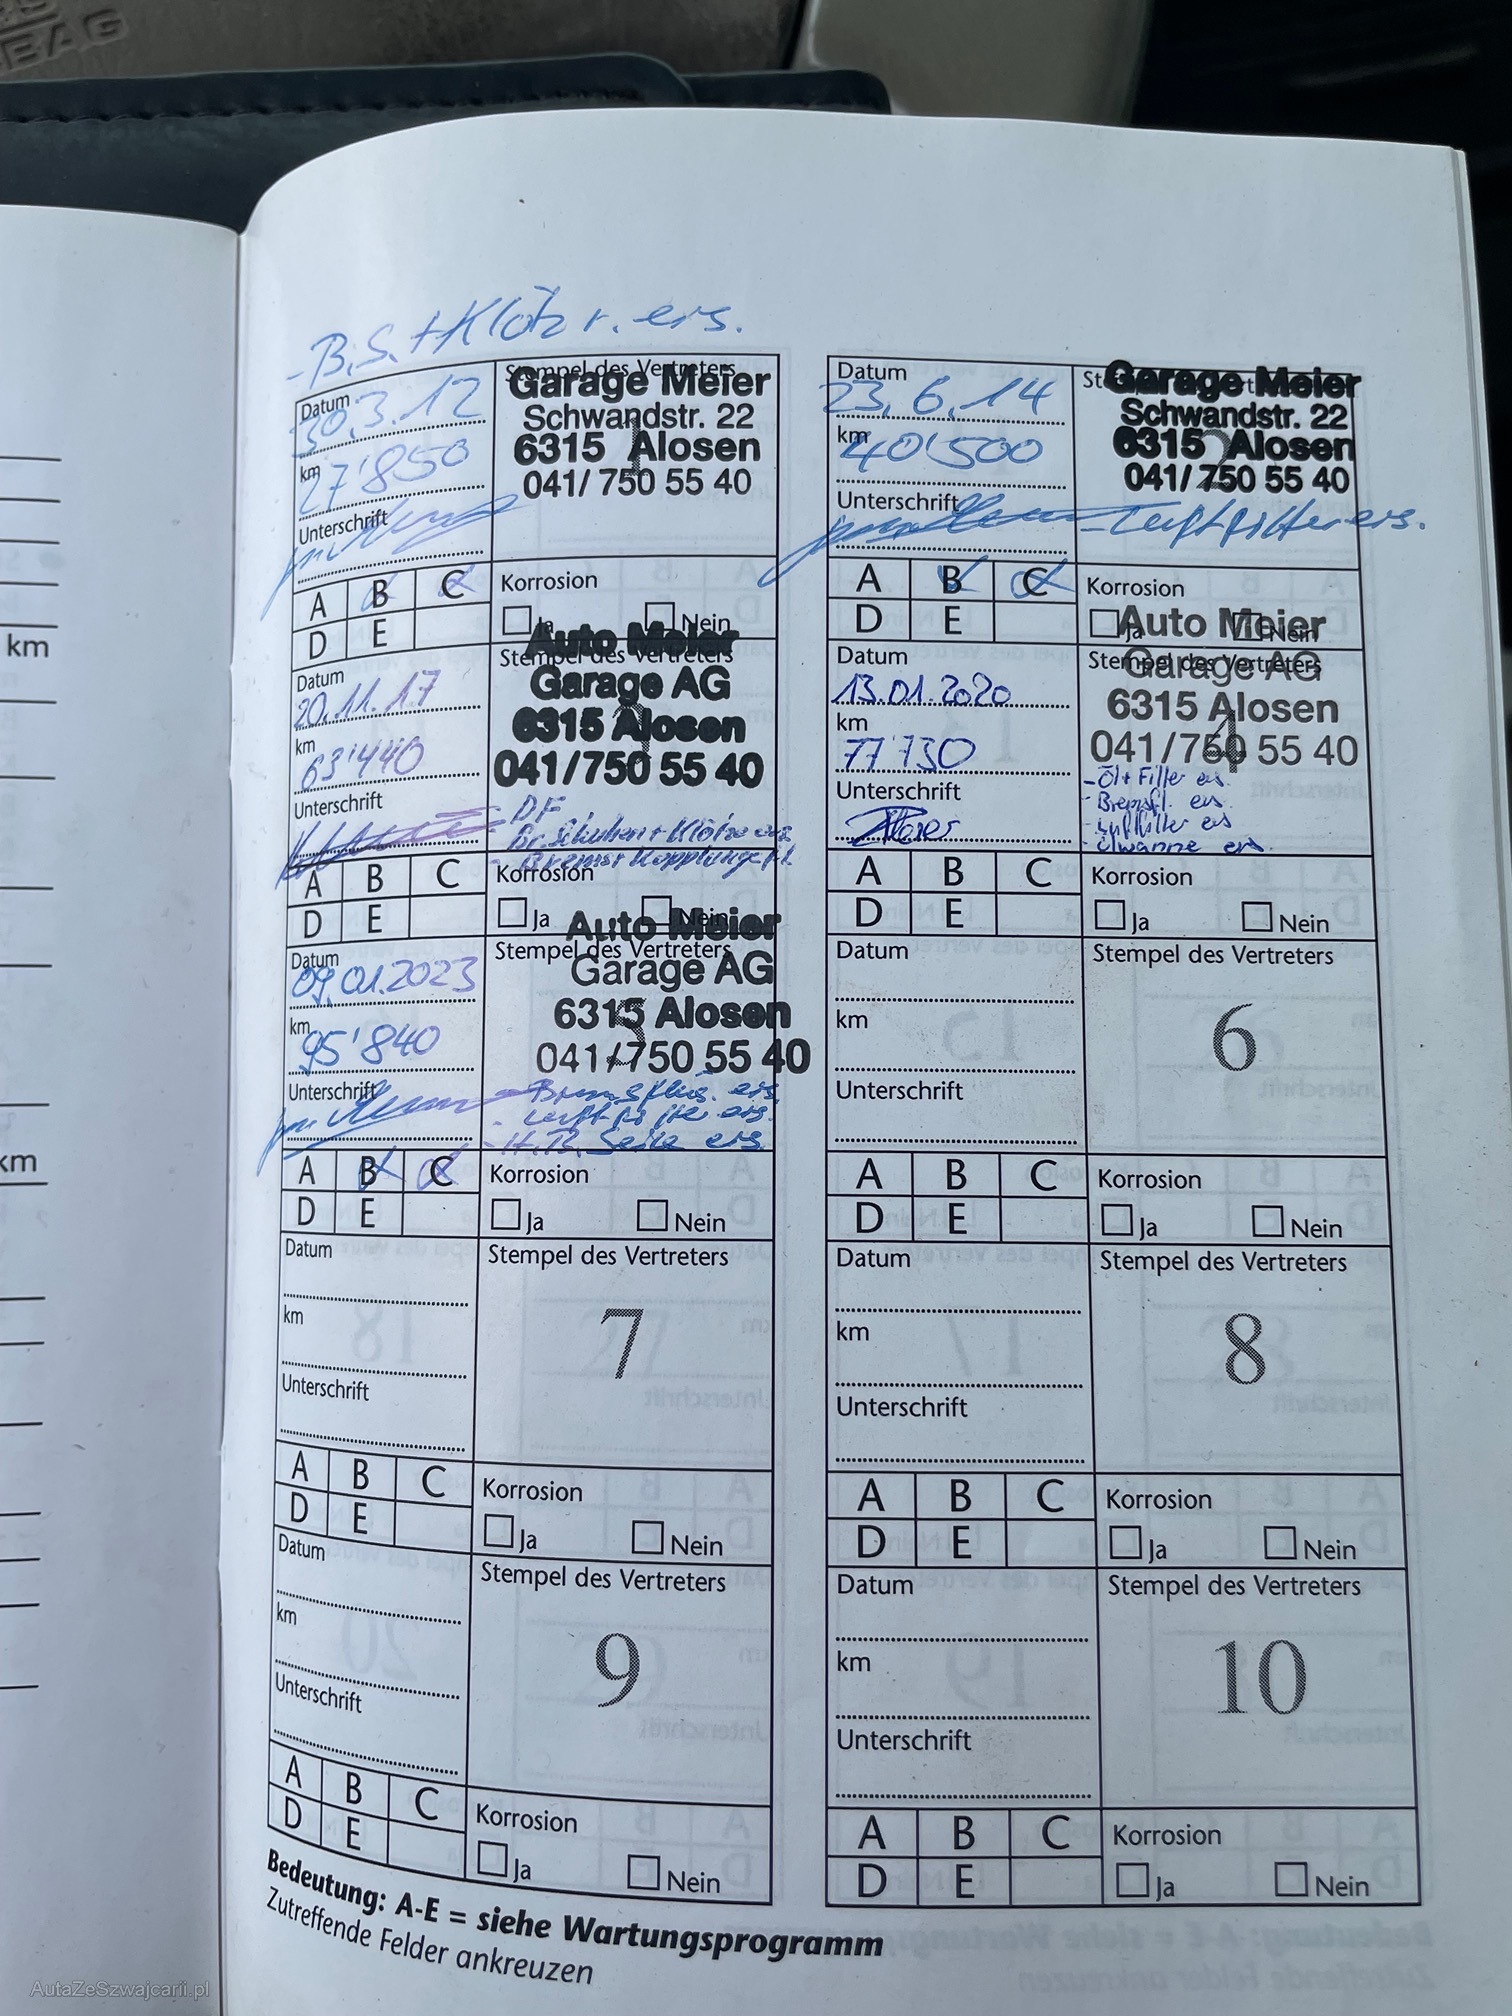 BAG
km
km
- B.S. + Klötz r. ers.
Datum
30.3.12
km
27'850
Unterschrift
Stempel des Vertreters
Garage Meier
Schwandstr. 22
6315 Alosen
041/ 750 55 40
A B C
D E
Korrosion
Ja Nein
Datum
23.6.14
km
40'500
Unterschrift
Garage Meier
Schwandstr. 22
6315 Alosen
041/ 750 55 40
- Luftfilter ers.
A B C
D E
Korrosion
Ja Nein
Datum
20.11.17
km
63'440
Unterschrift
Stempel des Vertreters
Auto Meier
Garage AG
6315 Alosen
041/750 55 40
- DF
Br. Schuhen + Klötze ers
- Brems +
A B C
D E
Korrosion
Ja Nein
Datum
13.01.2020
km
77'730
Unterschrift
Stempel des Vertreters
Auto Meier
Garage AG
6315 Alosen
041/750 55 40
4
- Öl + Filter ers.
- Bremsfl. ers.
- Luftfilter ers
- Ölwanne ers.
A B C
D E
Korrosion
Ja Nein
Datum
09.01.2023
km
95'840
Unterschrift
Stempel des Vertreters
Auto Meier
Garage AG
6315 Alosen
041/750 55 40
5
- Bremsflüs. ers.
- Luftfilter ers.
- H.B. Seile ers.
A B C
D E
Korrosion
Ja Nein
Datum
km
Unterschrift
Stempel des Vertreters
6
A B C
D E
Korrosion
Ja Nein
Datum
km
Unterschrift
Stempel des Vertreters
7
A B C
D E
Korrosion
Ja Nein
Datum
km
Unterschrift
Stempel des Vertreters
8
A B C
D E
Korrosion
Ja Nein
Datum
km
Unterschrift
Stempel des Vertreters
9
A B C
D E
Korrosion
Ja Nein
Datum
km
Unterschrift
Stempel des Vertreters
10
A B C
D E
Korrosion
Ja Nein
Bedeutung: A-E = siehe Wartungsprogramm
Zutreffende Felder ankreuzen
AutaZeSzwajcarii.pl